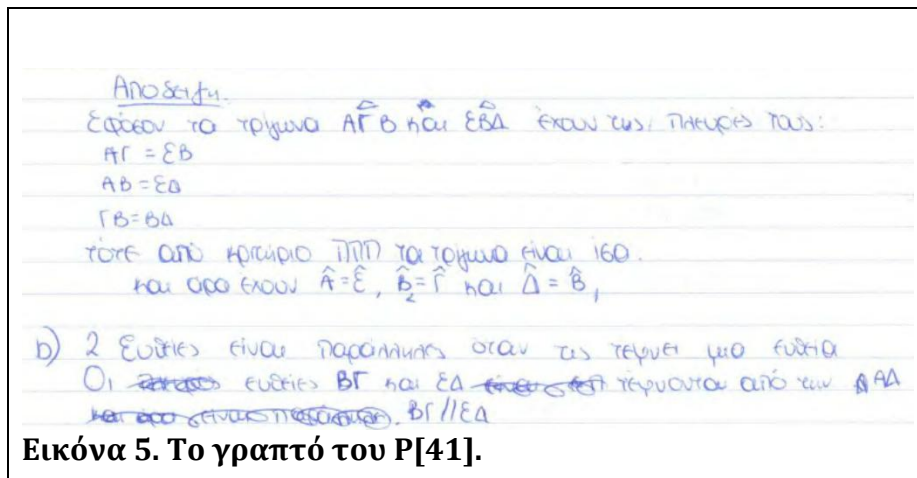 Απόδειξη.
Εφόσον τα τρίγωνα ΑΓ̂Β και ΕΒ̂Δ έχουν τις πλευρές τους:
ΑΓ = ΕΒ
ΑΒ = ΕΔ
ΓΒ = ΒΔ
τότε από κριτήριο ΠΠΠ τα τρίγωνα είναι ίσα.
και άρα έχουν Â = Ê, B̂₂ = Γ̂ και Δ̂ = B̂₁
b) 2 Ευθείες είναι παράλληλες όταν τις τέμνει μια ευθεία
Οι ευθείες ΒΓ και ΕΔ τέμνονται από την ΑΔ
ΒΓ//ΕΔ
Εικόνα 5. Το γραπτό του P[41].